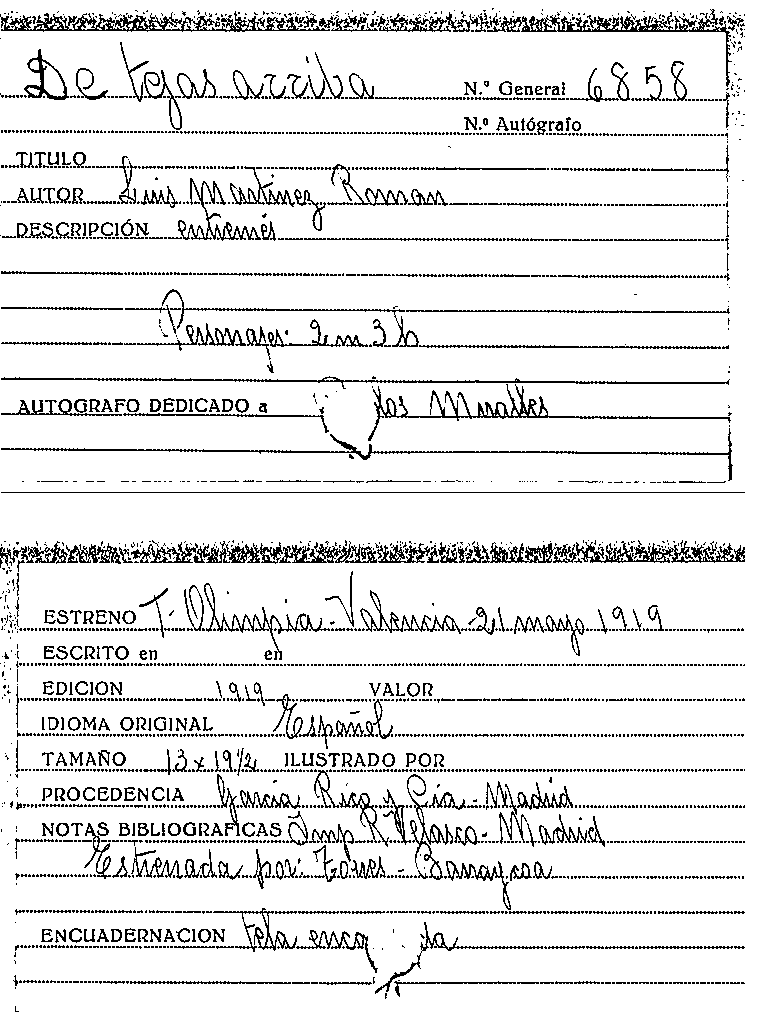 De tejas arriba N.º General 6858
N.º Autógrafo
TITULO
AUTOR Luis Martinez Roman
DESCRIPCIÓN entremés
Personajes: 2 m 3 h
AUTOGRAFO DEDICADO a los Miralles
ESTRENO T. Olimpia - Valencia 21 mayo 1919
ESCRITO en en
EDICION 1919 VALOR
IDIOMA ORIGINAL Español
TAMAÑO 13 x 19 1/2 ILUSTRADO POR
PROCEDENCIA Garcia Rico y Cia - Madrid
NOTAS BIBLIOGRAFICAS Imp R. Velasco - Madrid
Estrenada por:
ENCUADERNACION tela